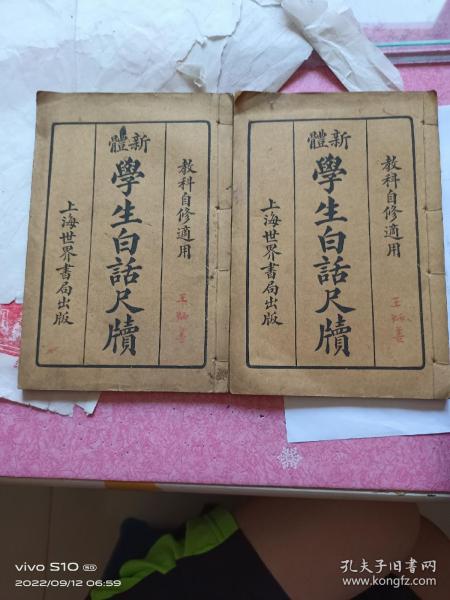 教科自修適用
新體
學生白話尺牘
上海世界書局出版
王
教科自修適用
新體
學生白話尺牘
上海世界書局出版
王
vivo S10 5G
2022/09/12 06:59
孔夫子旧书网
www.kongfz.com